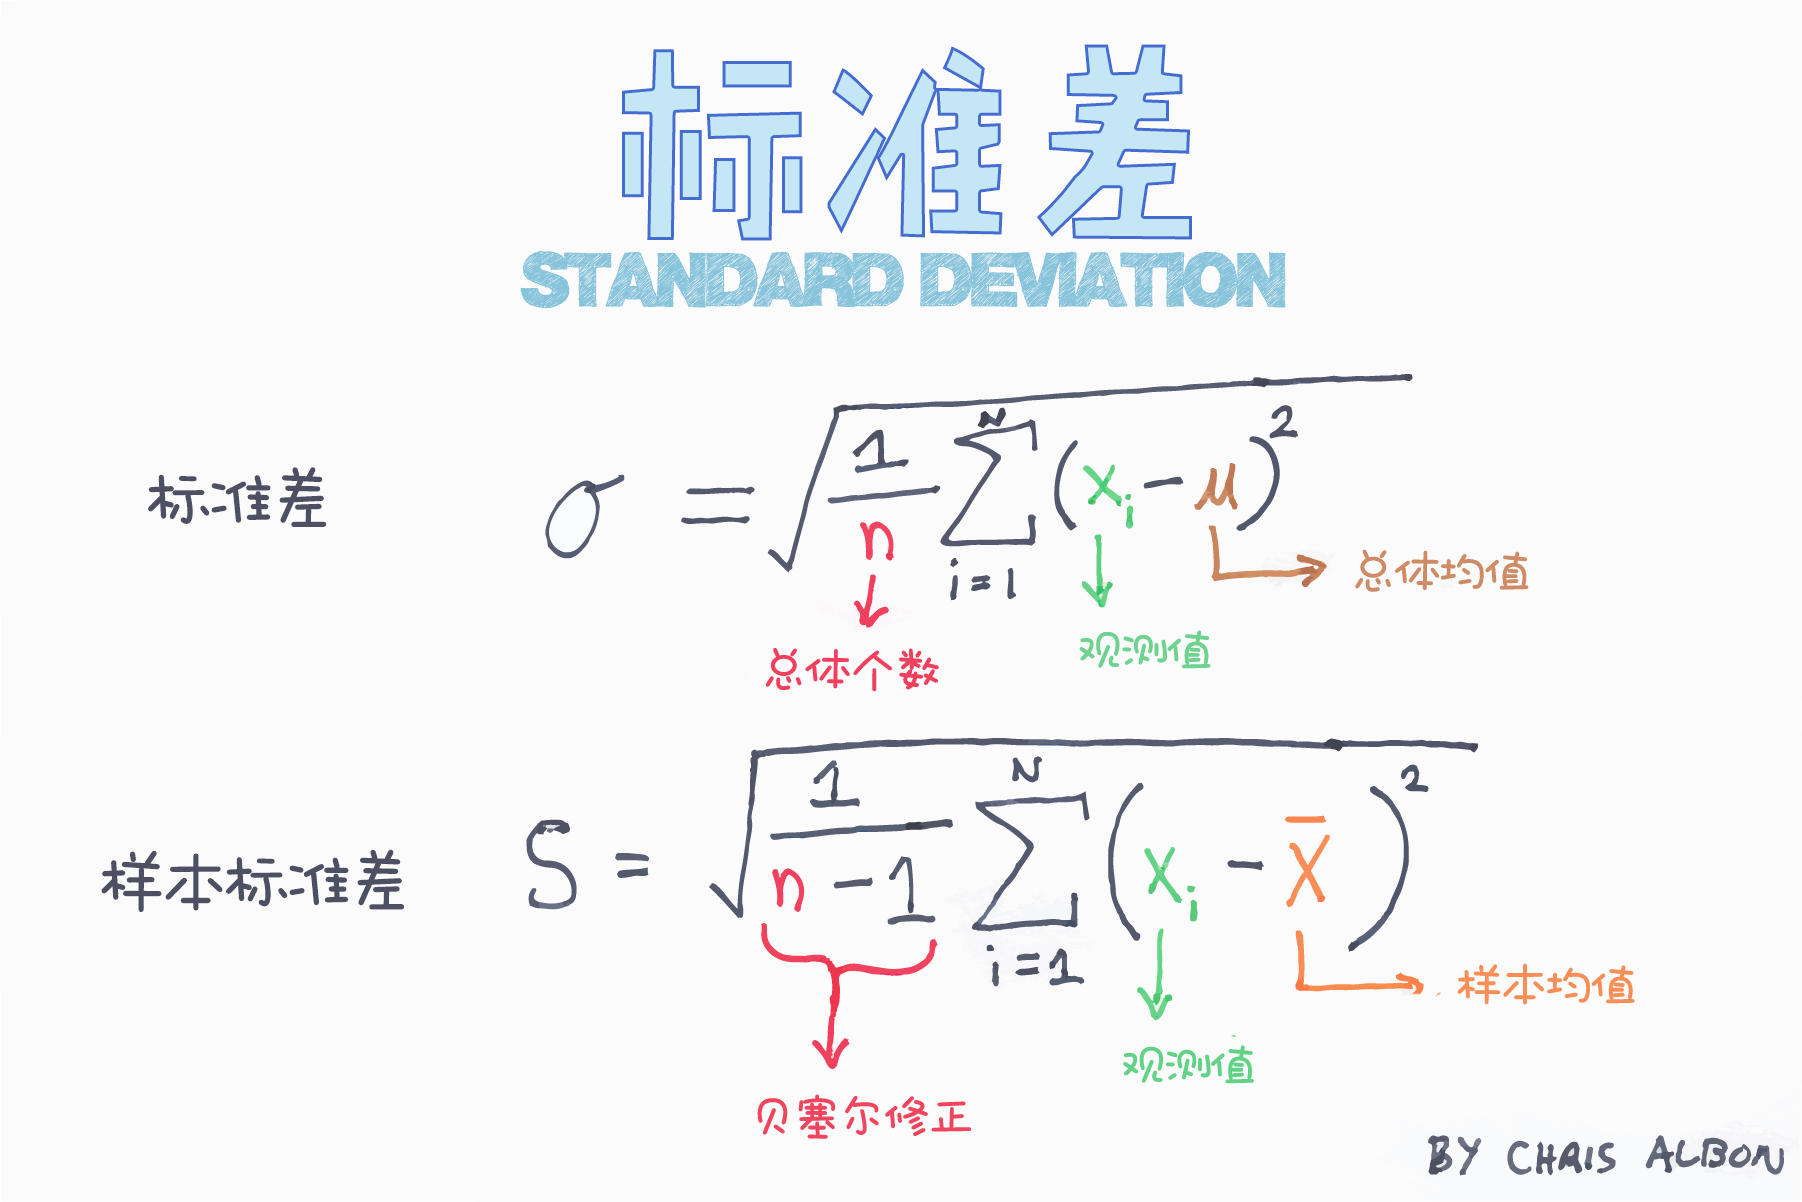 标准差
STANDARD DEVIATION
标准差 σ = √(1/n ∑_{i=1}^{N} (x_i - μ)²)
总体均值
观测值
总体个数
样本标准差 S = √(1/(n-1) ∑_{i=1}^{N} (x_i - x̄)²)
样本均值
观测值
贝塞尔修正
BY CHRIS ALBON